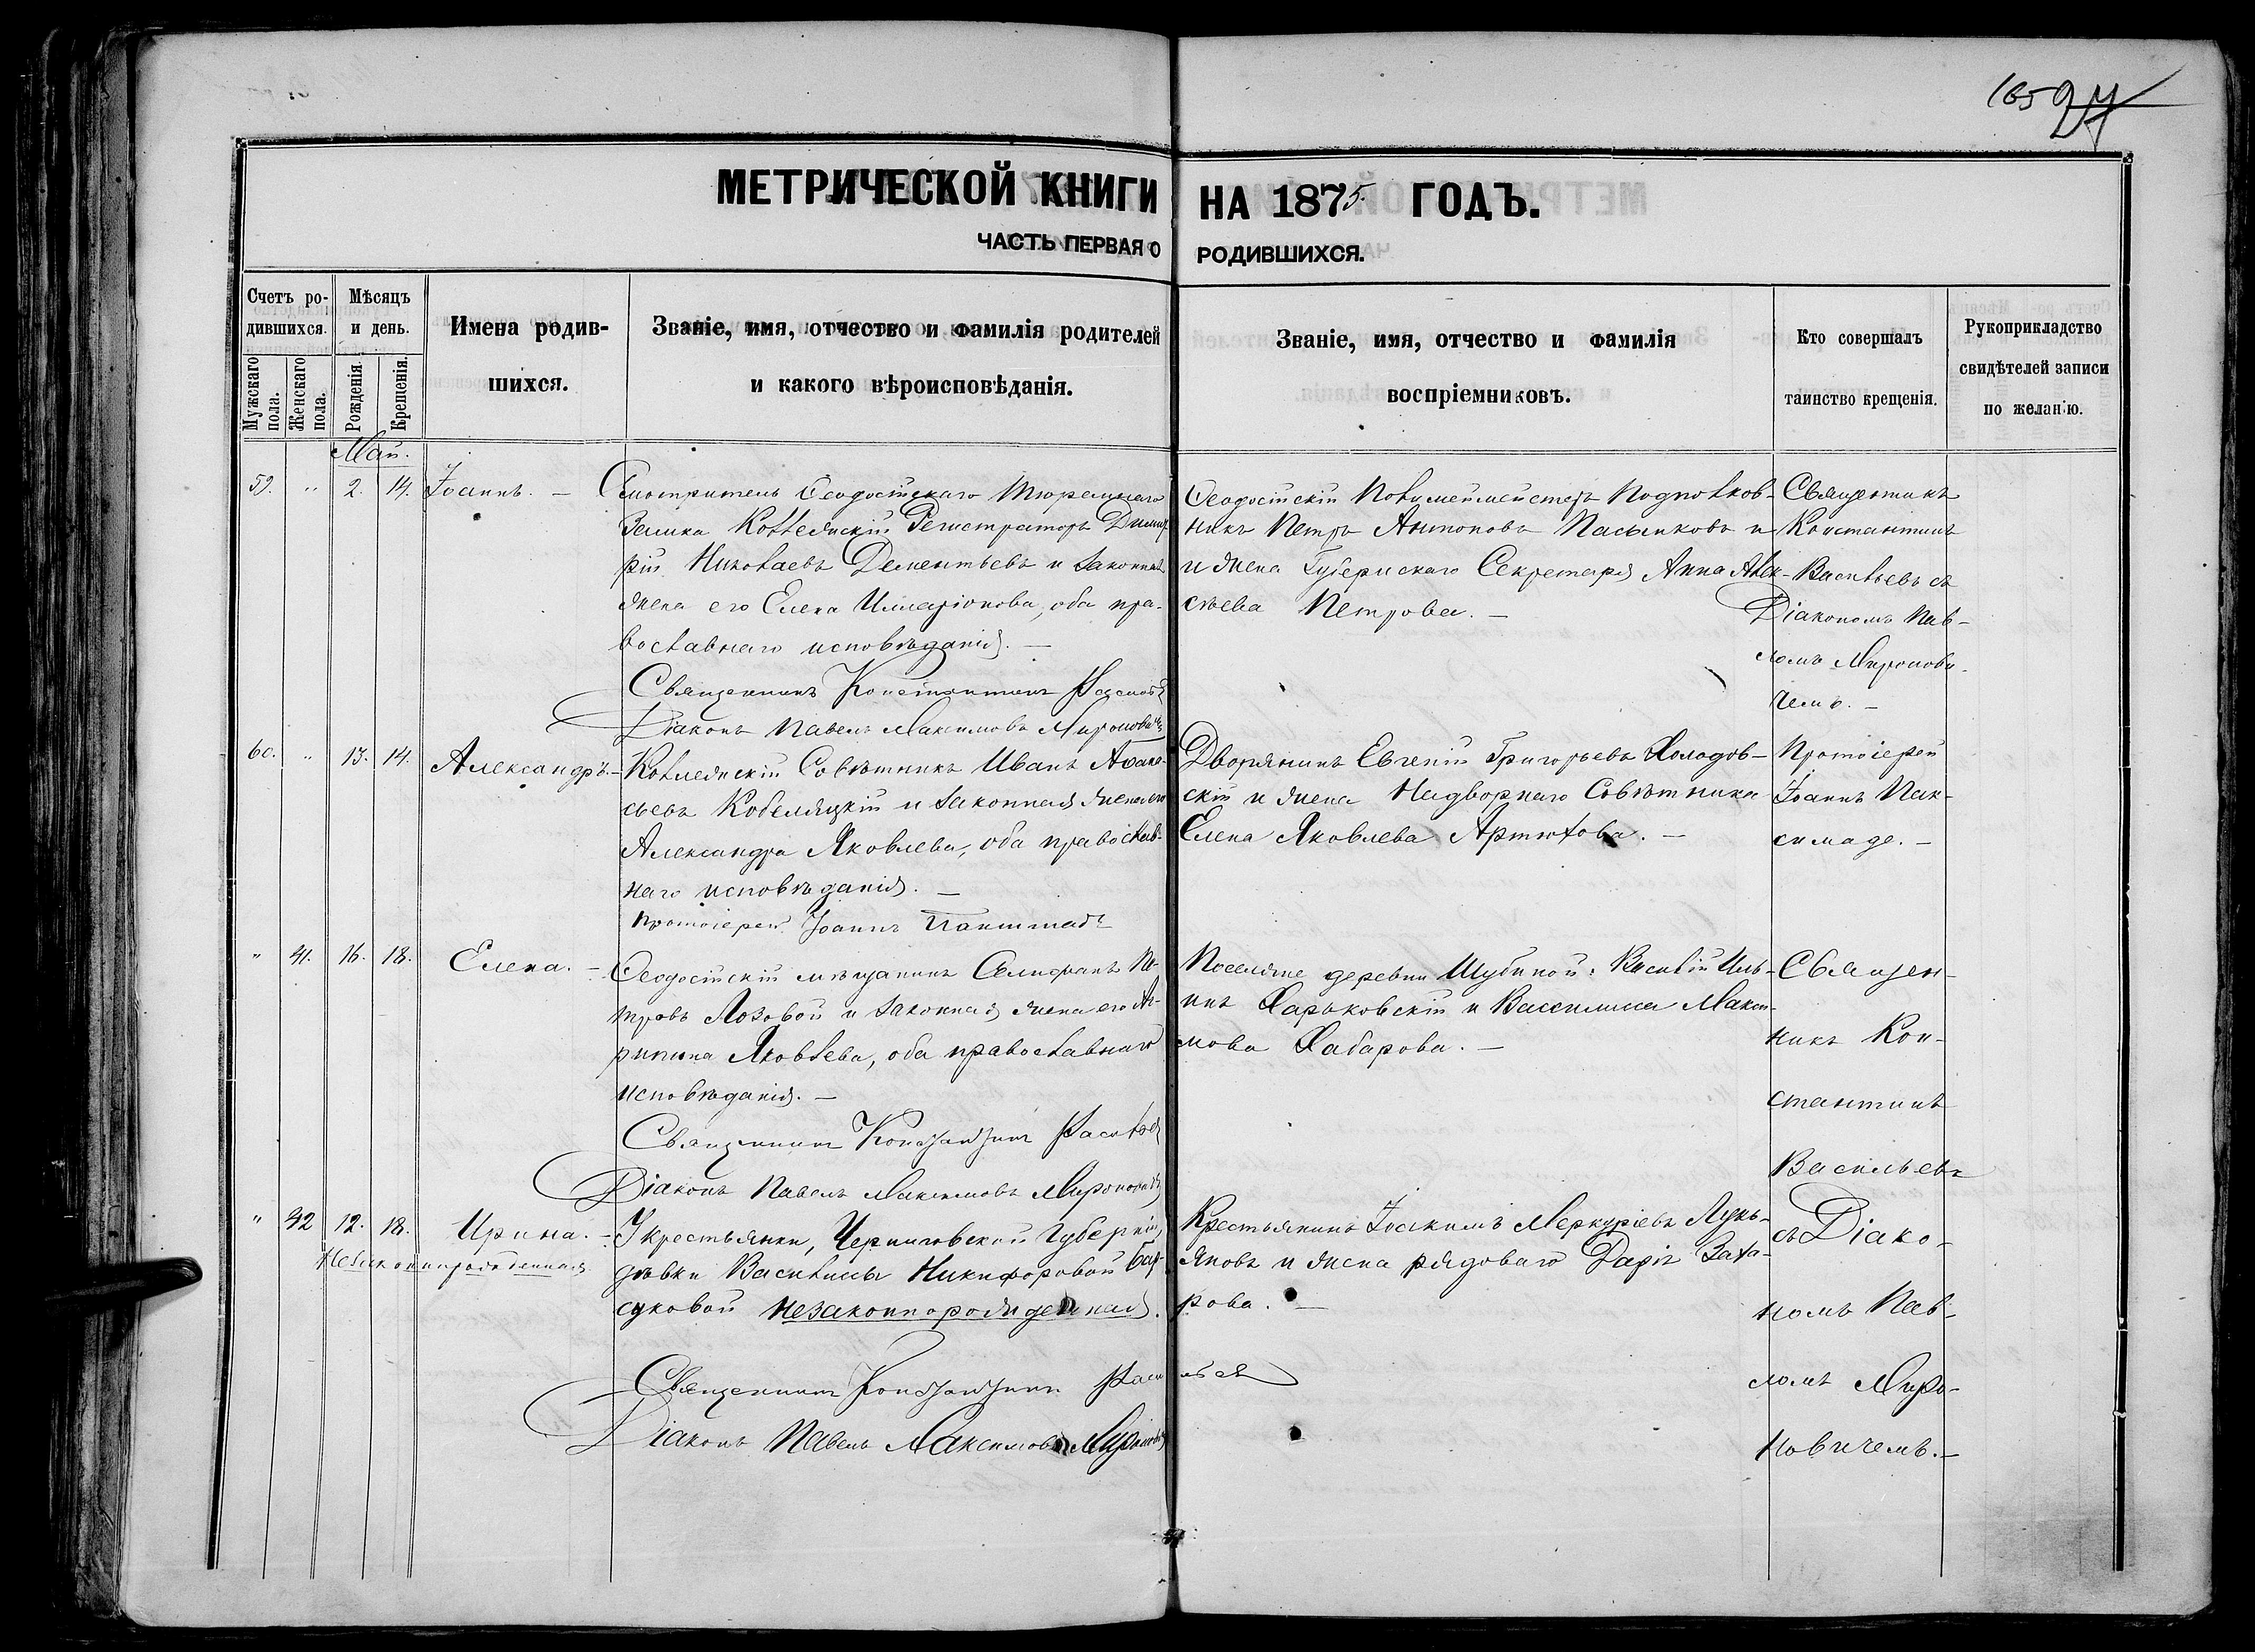 165 27
МЕТРИЧЕСКОЙ КНИГИ НА 1875. ГОДЪ.
ЧАСТЬ ПЕРВАЯ О РОДИВШИХСЯ.
Счетъ ро-
дившихся.
Мужскаго
пола.
Женскаго
пола.
Мѣсяцъ
и день.
Рожденія.
Крещенія.
Имена родив-
шихся.
Званіе, имя, отчество и фамилія родителей
и какого вѣроисповѣданія.
Званіе, имя, отчество и фамилія
воспріемниковъ.
Кто совершалъ
таинство крещенія.
Рукоприкладство
свидѣтелей записи
по желанію.
Май.
59. " 2. 14. Іоаннъ. —
Смотритель Ѳеодосійскаго Тюремнаго
Замка Коллежскій Регистраторъ Димит
рій Николаевъ Дементьевъ и законная
жена его Елена Илларіонова, оба пра-
вославнаго исповѣданія. —
Священникъ Константинъ Васильевъ
Діаконъ Павелъ Максимовъ Мироновичъ
Ѳеодосійскій Полицмейстеръ Подполков-
никъ Петръ Антоновъ Пасынковъ и
и жена Губернскаго Секретаря Анна Алек-
сѣева Петрова. —
Священникъ
Константинъ
Васильевъ съ
Діакономъ Пав-
ломъ Миронови-
чемъ. —
60. " 13. 14. Александръ. —
Коллежскій Совѣтникъ Иванъ Аѳана-
сьевъ Кобеляцкій и законная жена его
Александра Яковлева, оба православ-
наго исповѣданія. —
Протоіерей Іоаннъ Паксимадъ
Дворянинъ Евгеній Григорьевъ Холодов-
скій и жена Надворнаго Совѣтника
Елена Яковлева Артюхова. —
Протоіерей
Іоаннъ Пак-
симаде. —
" 41. 16. 18. Елена. —
Ѳеодосійскій мѣщанинъ Селифанъ Пе-
тровъ Лозовой и законная жена его Аг-
рипина Яковлева, оба православнаго
исповѣданія. —
Священникъ Константинъ Васильев
Діаконъ Павелъ Максимовъ Мироновичъ
Поселяне деревни Шубиной: Василій Иль-
инъ Харьковскій и Василиса Макси-
мова Хабарова. —
Священ-
никъ Кон-
стантинъ
Васильевъ
съ Діако-
номъ Пав-
ломъ Миро-
новичемъ. —
" 42 12. 18. Ирина. —
Незаконнорожденная
У крестьянки, Черниговской Губерніи,
дѣвки Василисы Никифоровой Бар-
суковой незаконнорожденная.
Священникъ Константинъ Васильев
Діаконъ Павелъ Максимовъ Мироновичъ
Крестьянинъ Іоакимъ Меркуріевъ Лукь-
яновъ и жена рядоваго Дарія Заха-
рова. —